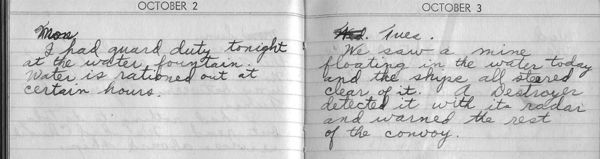 OCTOBER 2
Mon
I had guard duty tonight
at the water fountain.
Water is rationed out at
certain hours.
OCTOBER 3
Tues.
We saw a mine
floating in the water today
and the ships all steared
clear of it. A Destroyer
detected it with its radar
and warned the rest
of the convoy.